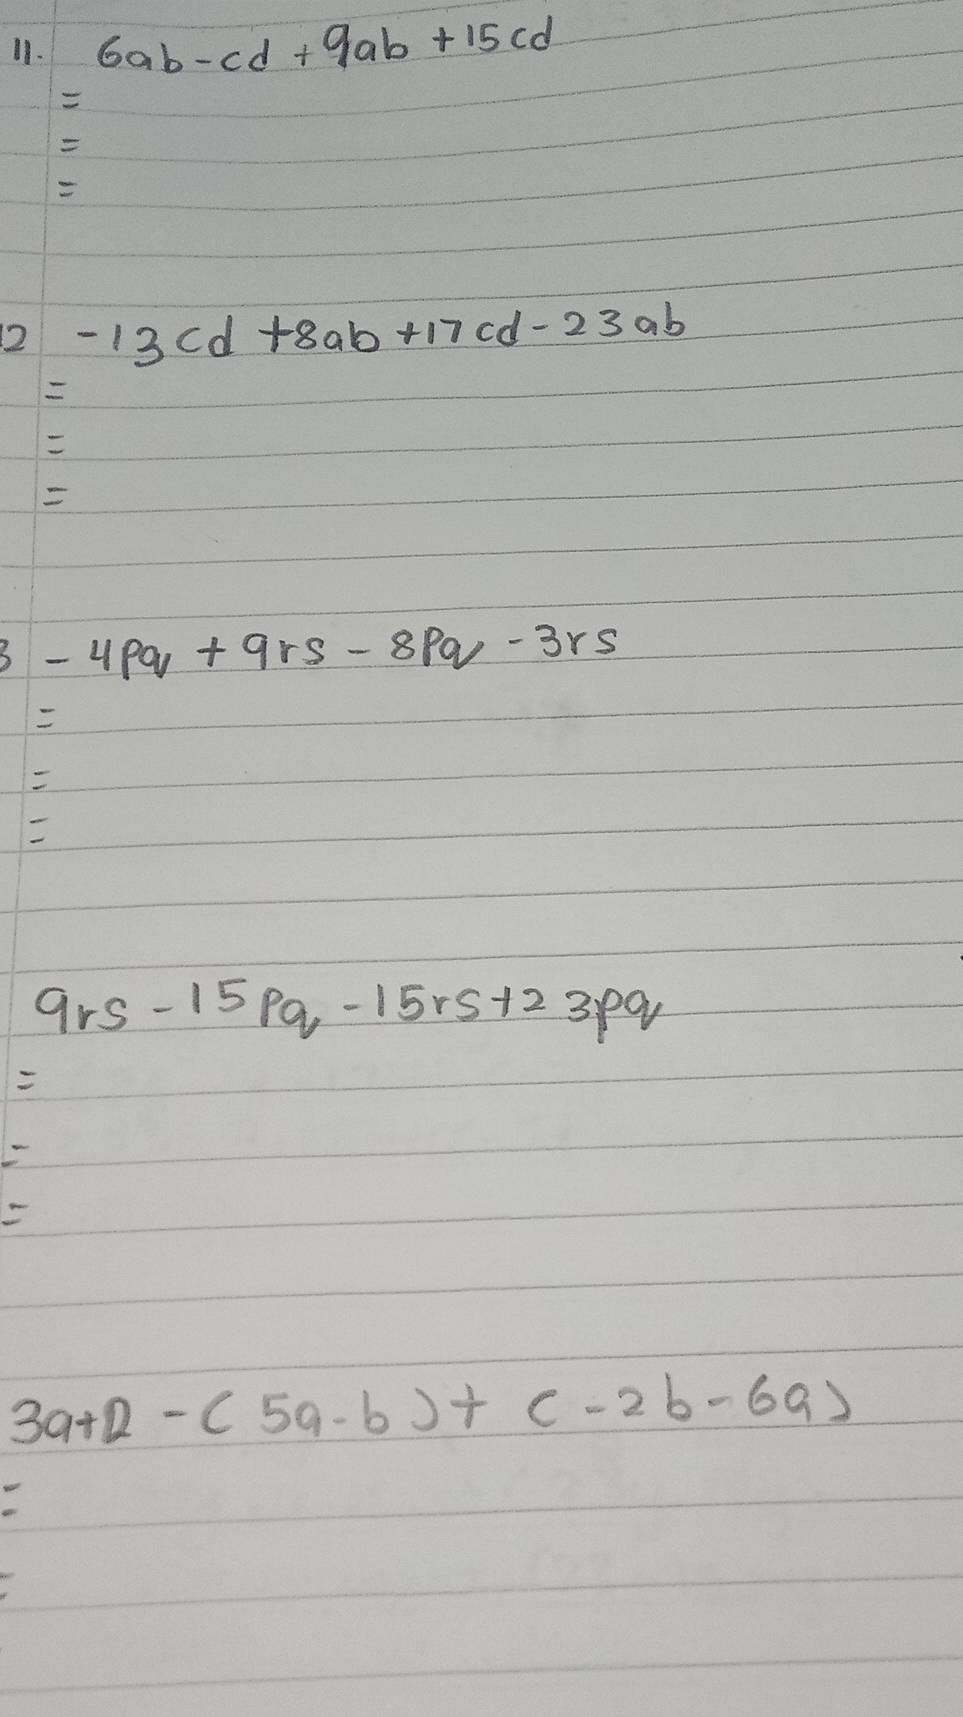 11. 6ab-cd+9ab+15cd
=
=
=
12 -13cd+8ab+17cd-23ab
=
=
=
3 -4pq+9rs-8pq-3rs
=
=
=
9rs-15pq-15rs+23pq
=
=
=
3a+2-(5a-b)+(-2b-6a)
=
=